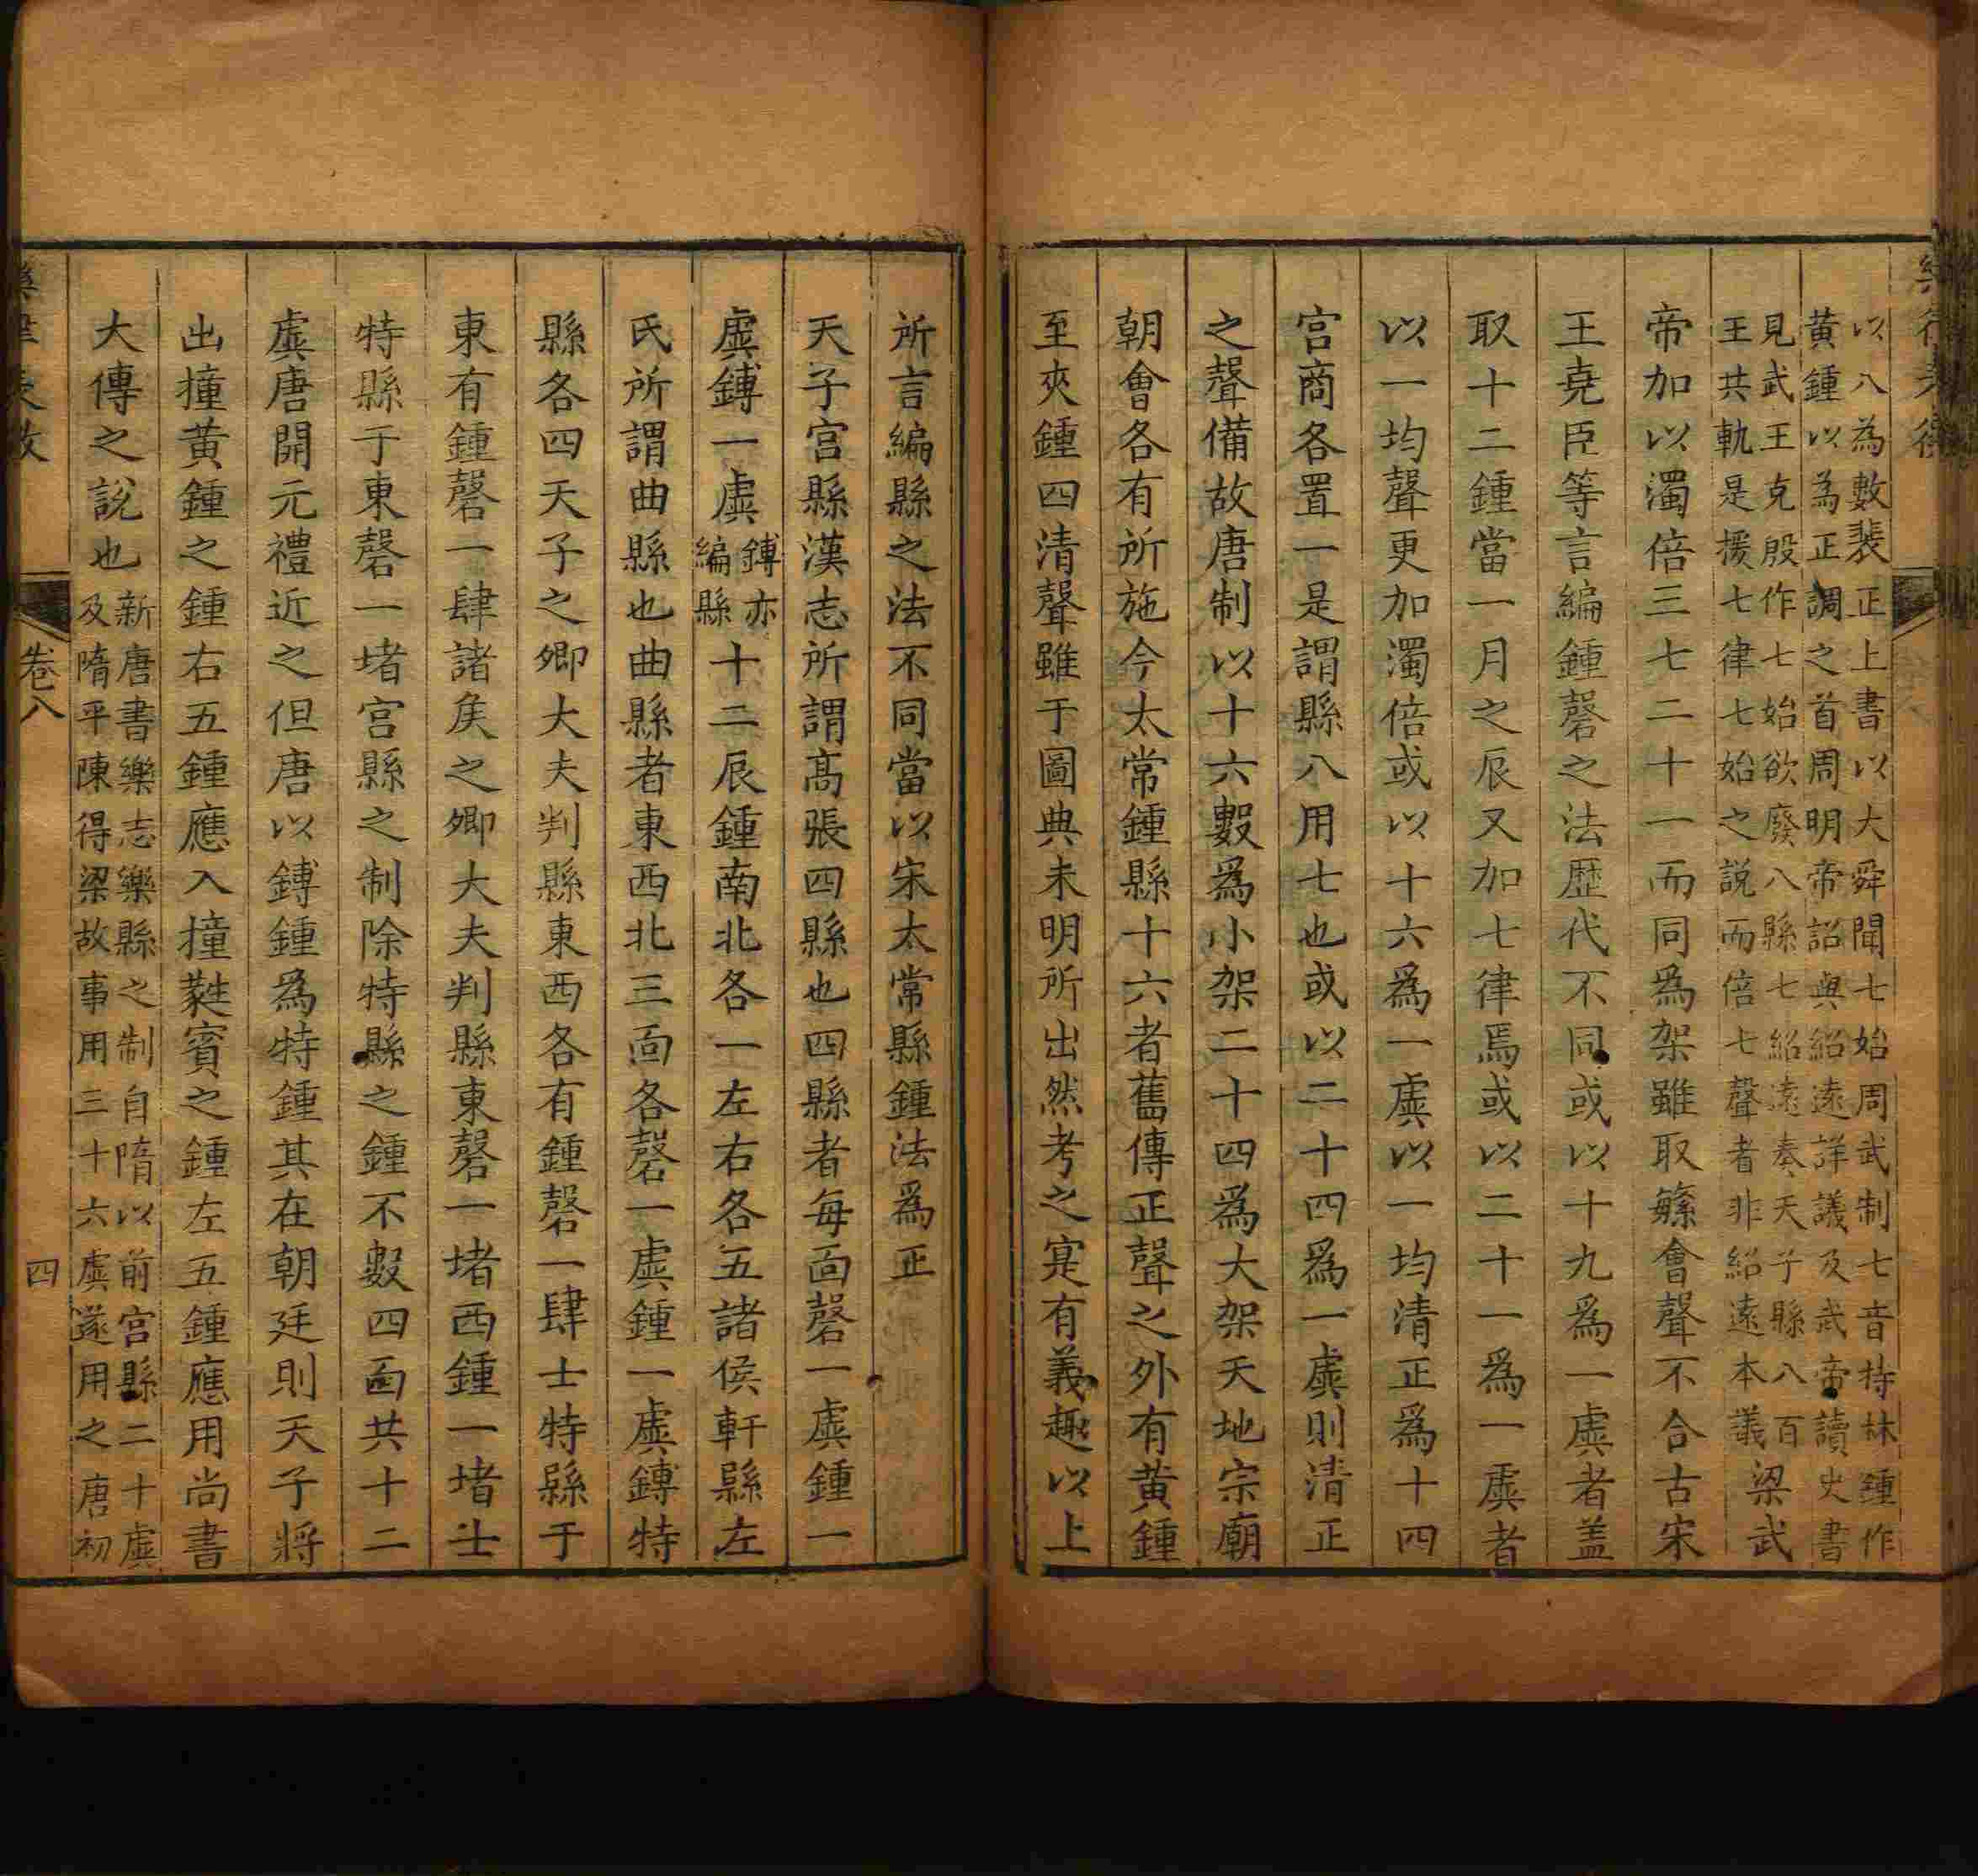 以八為數裴正上書以大舜聞七始周武制七音持林鍾作
黄鍾以為正調之首周明帝詔與紹遠詳議及武帝讀史書
見武王克殷作七始欲廢八縣七紹遠奏天子縣八百
王共軌是援七律七始之說而倍七聲者非紹遠本議
梁武
帝加以濁倍三七二十一而同爲架雖取緐會聲不合古宋
王堯臣等言編鍾磬之法歴代不同或以十九爲一虡者盖
取十二鍾當一月之辰又加七律焉或以二十一爲一虡者
以一均聲更加濁倍或以十六爲一虡以一均清正爲十四
宫商各置一是謂縣八用七也或以二十四爲一虡則清正
之聲備故唐制以十六數爲小架二十四爲大架天地宗廟
朝會各有所施今太常鍾縣十六者舊傳正聲之外有黄鍾
至夾鍾四清聲雖于圖典未明所出然考之寔有義趣以上
所言編縣之法不同當以宋太常縣鍾法爲正
天子宫縣漢志所謂髙張四縣也四縣者每靣磬一虡鍾一
虡鎛一虡
鎛亦
編縣
十二辰鍾南北各一左右各五諸侯軒縣左
氏所謂曲縣也曲縣者東西北三靣各磬一虡鍾一虡鎛特
縣各四天子之卿大夫判縣東西各有鍾磬一肆士特縣于
東有鍾磬一肆諸矦之卿大夫判縣東磬一堵西鍾一堵士
特縣于東磬一堵宫縣之制除特縣之鍾不數四靣共十二
虡唐開元禮近之但唐以鎛鍾為特鍾其在朝廷則天子將
出撞黄鍾之鍾右五鍾應入撞蕤賓之鍾左五鍾應用尚書
大傳之説也
新唐書樂志樂縣之制自隋以前宫縣二十虡
及隋平陳得梁故事用三十六虡遂用之唐初
卷八
四